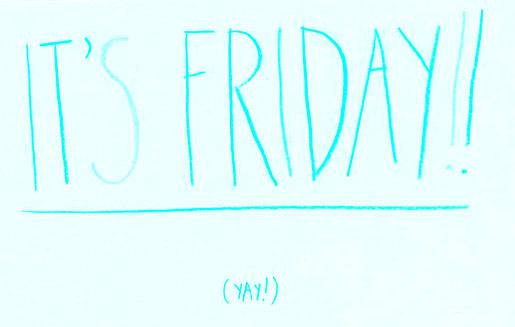 IT'S FRIDAY!!
(YAY!)